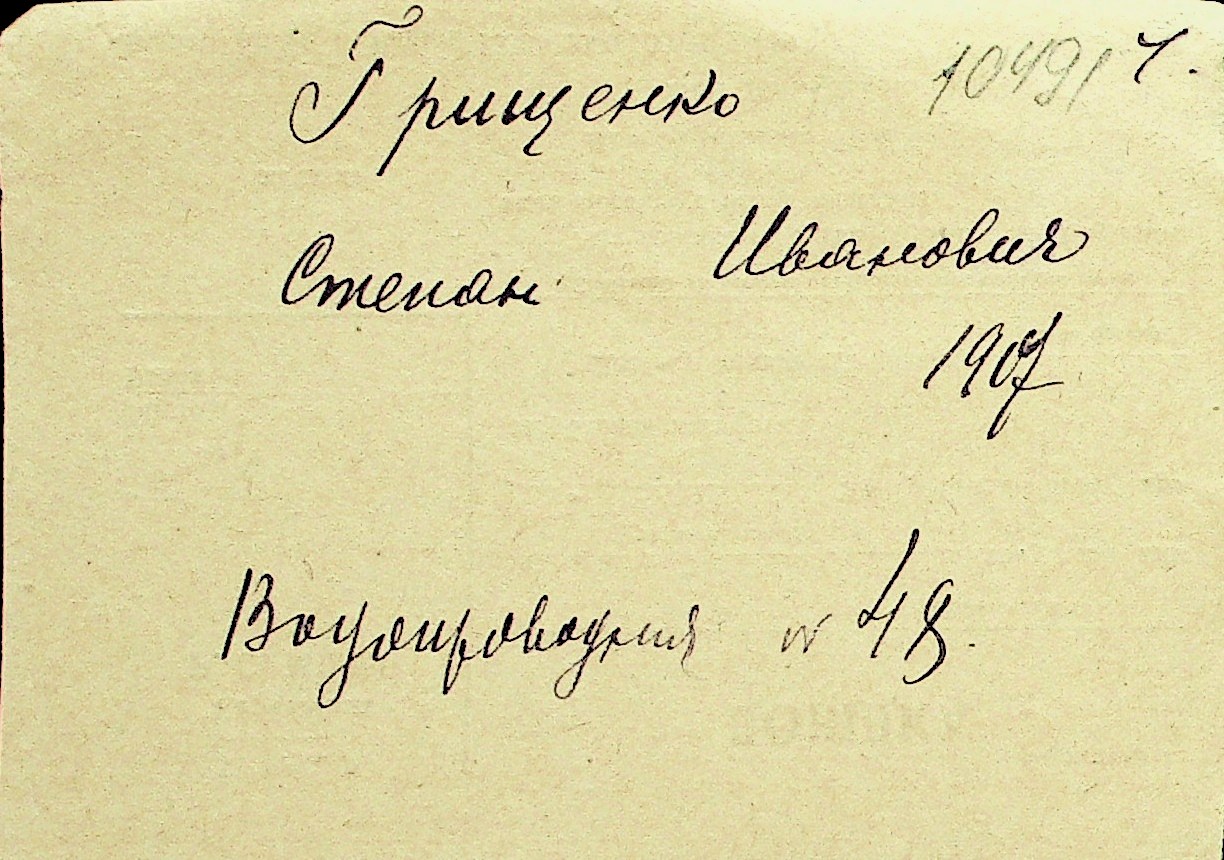 10491 ч.
Грищенко
Степан Иванович
1907
Водопроводная № 48.